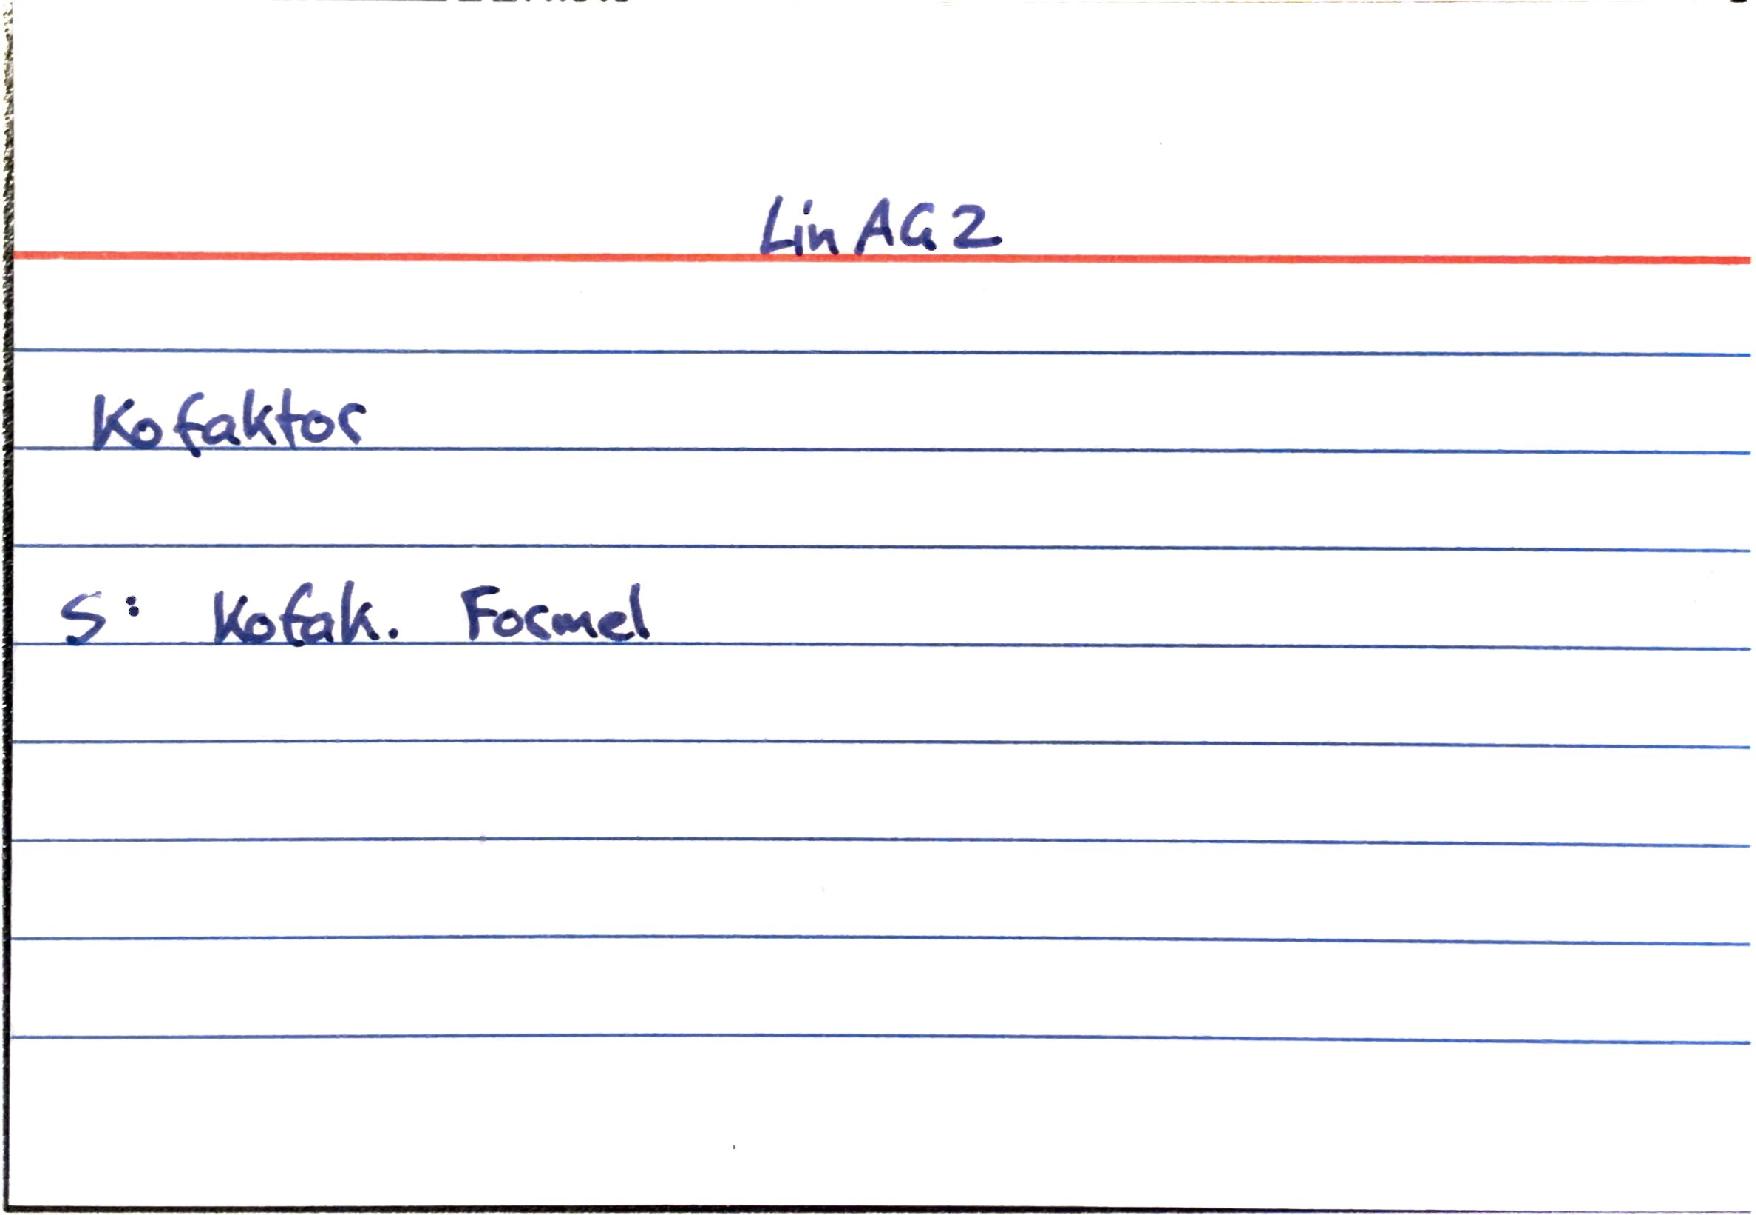 Lin AG 2
Kofaktor
S: Kofak. Formel